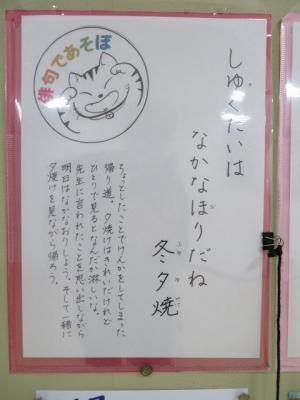 俳句であそぼ
しゅくだいは
なかなほりだね
冬夕焼
ふゆ ゆ やけ
ちょっとしたことでけんかをしてしまった
帰り道。夕焼けはきれいだけれど
ひとりで見るとなんだか淋しいな。
先生に言われたことを思い出しながら
明日はなかなおりしよう。そして一緒に
夕焼けを見ながら帰ろう。